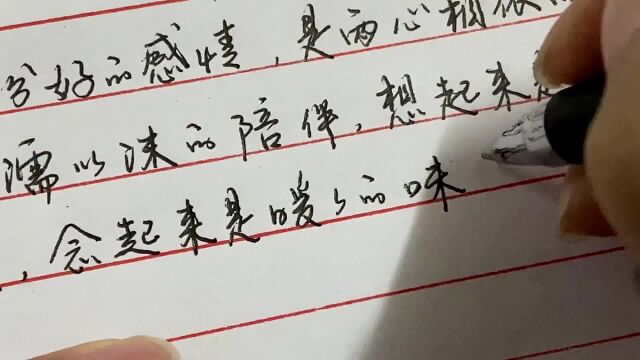 好的感情,是两心相依
濡以沫的陪伴,想起来是
,念起来是暖暖的味